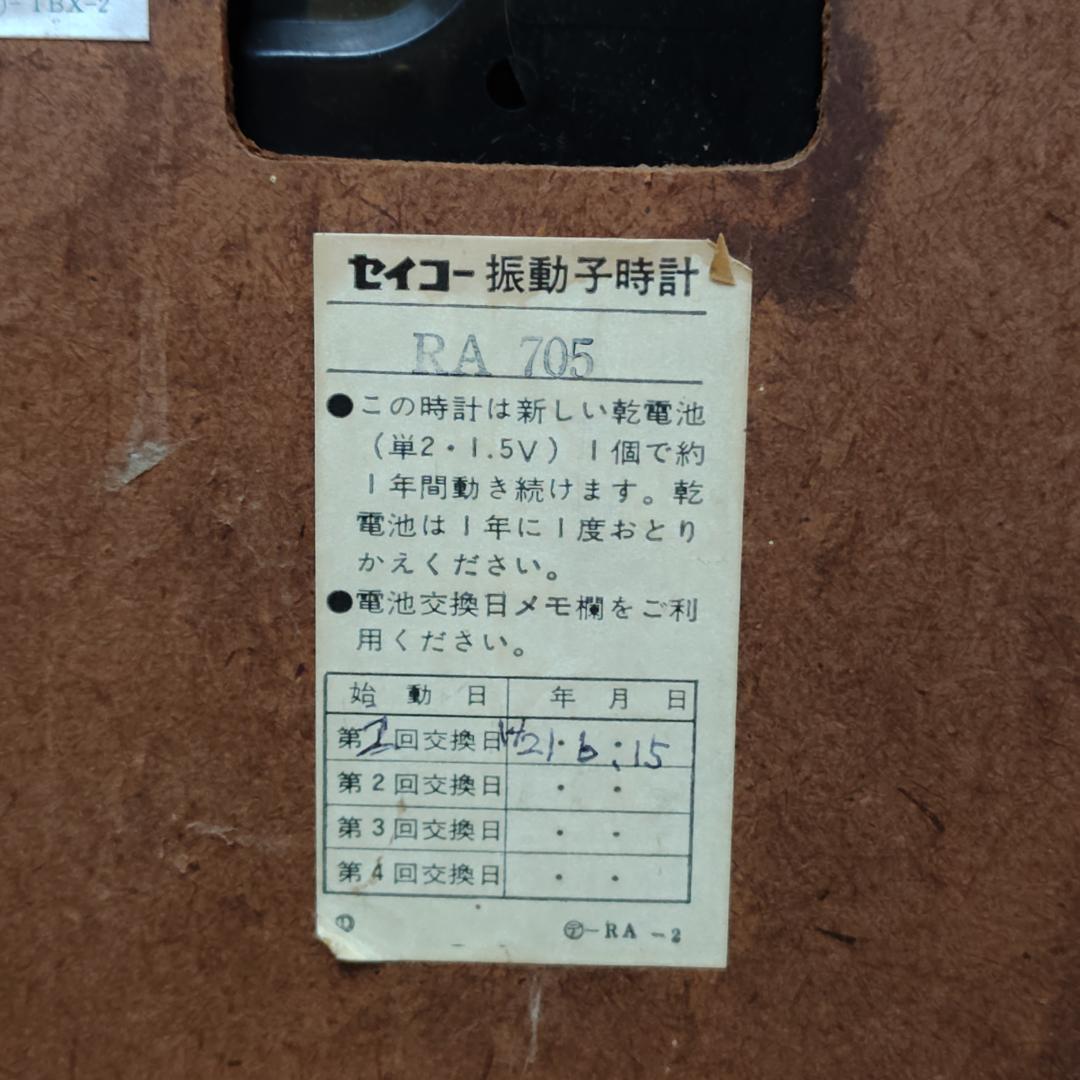 -TBX-2
セイコー振動子時計
RA 705
●この時計は新しい乾電池
(単2・1.5V) 1個で約
1年間動き続けます。乾
電池は1年に1度おとり
かえください。
●電池交換日メモ欄をご利
用ください。
始 動 日 年 月 日
第1回交換日 H21・6・15
第2回交換日 ・ ・
第3回交換日 ・ ・
第4回交換日 ・ ・
㋢-RA -2